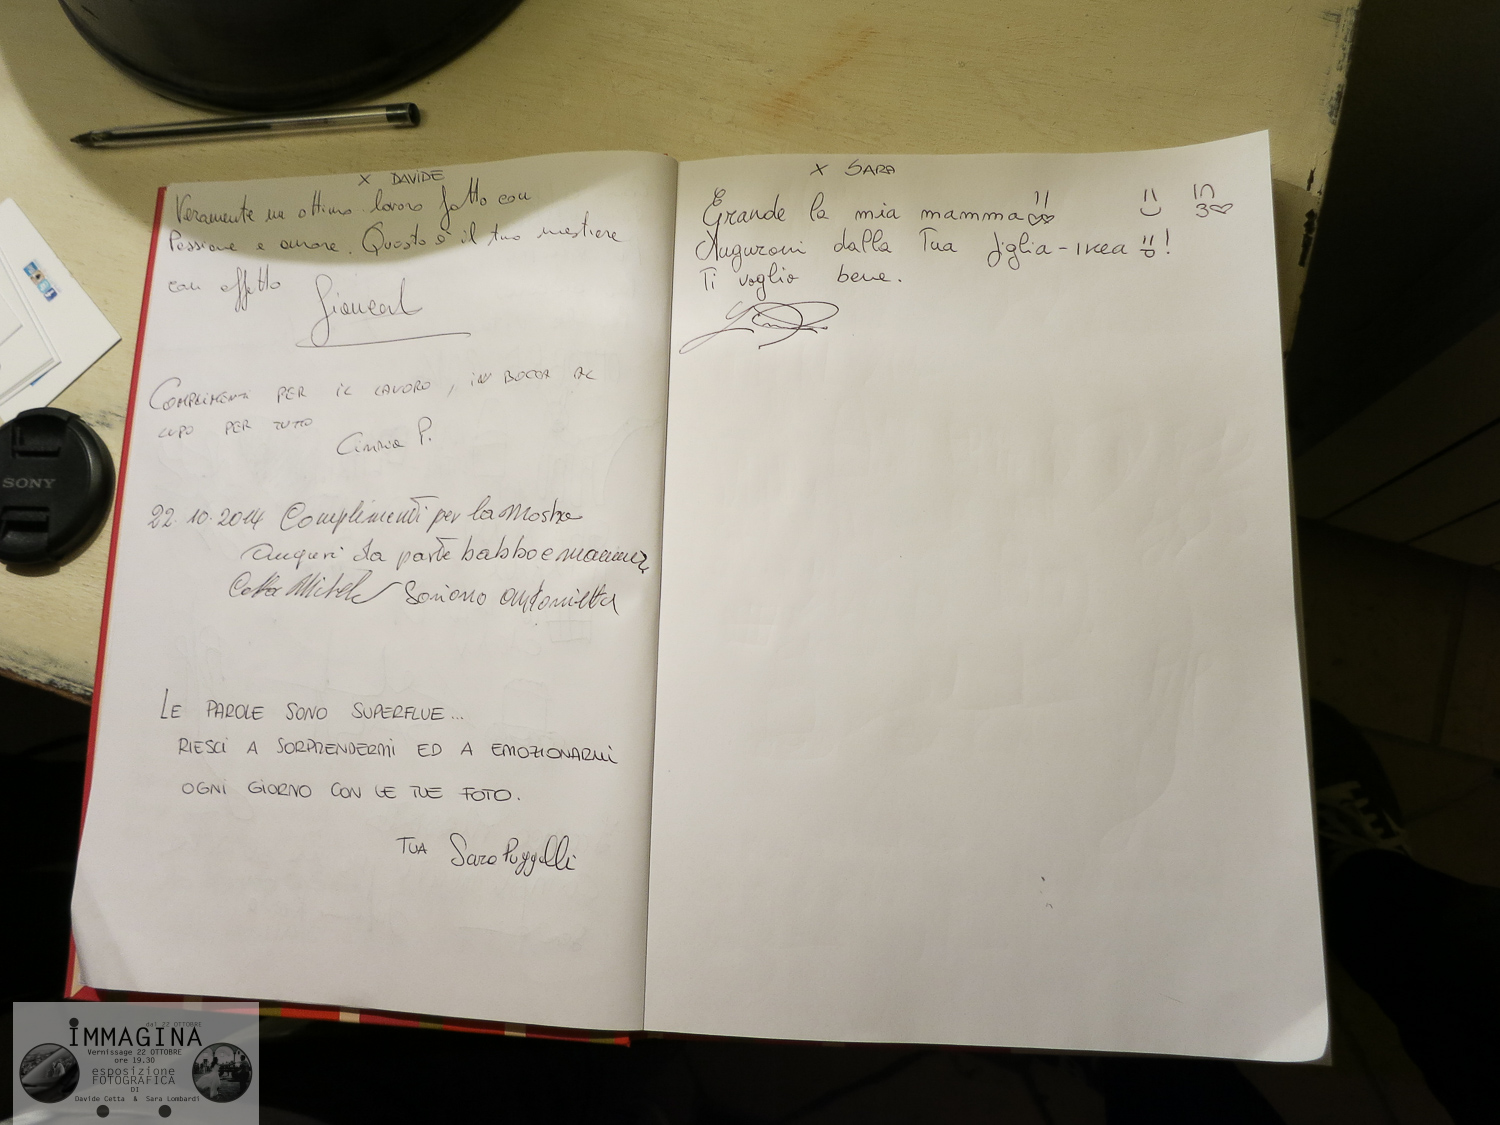 X DAVIDE
Veramente un ottimo lavoro fatto con
Passione e amore. Questo è il tuo mestiere
con affetto
Complimenti per il lavoro, in bocca al
lupo per tutto
Cinzia P.
22.10.2014 Complimenti per la Mostra
auguri da parte babbo e mamma
Cetta Michele Soriano Antonietta
LE PAROLE SONO SUPERFLUE...
RIESCI A SORPRENDERMI ED A EMOZIONARMI
OGNI GIORNO CON LE TUE FOTO.
TUA Sara Puggelli
X SARA
Grande la mia mamma
Auguroni dalla Tua figlia-ikea !
Ti voglio bene.
SONY
dal 22 OTTOBRE
iMMAGINA
Vernissage 22 OTTOBRE
ore 19.30
esposizione
FOTOGRAFICA
DI
Davide Cetta & Sara Lombardi